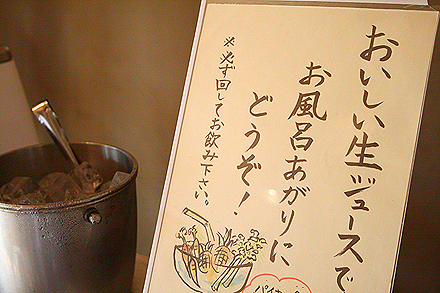 おいしい生ジュースで
お風呂あがりに
どうぞ!
※必ず回してお飲み下さい。